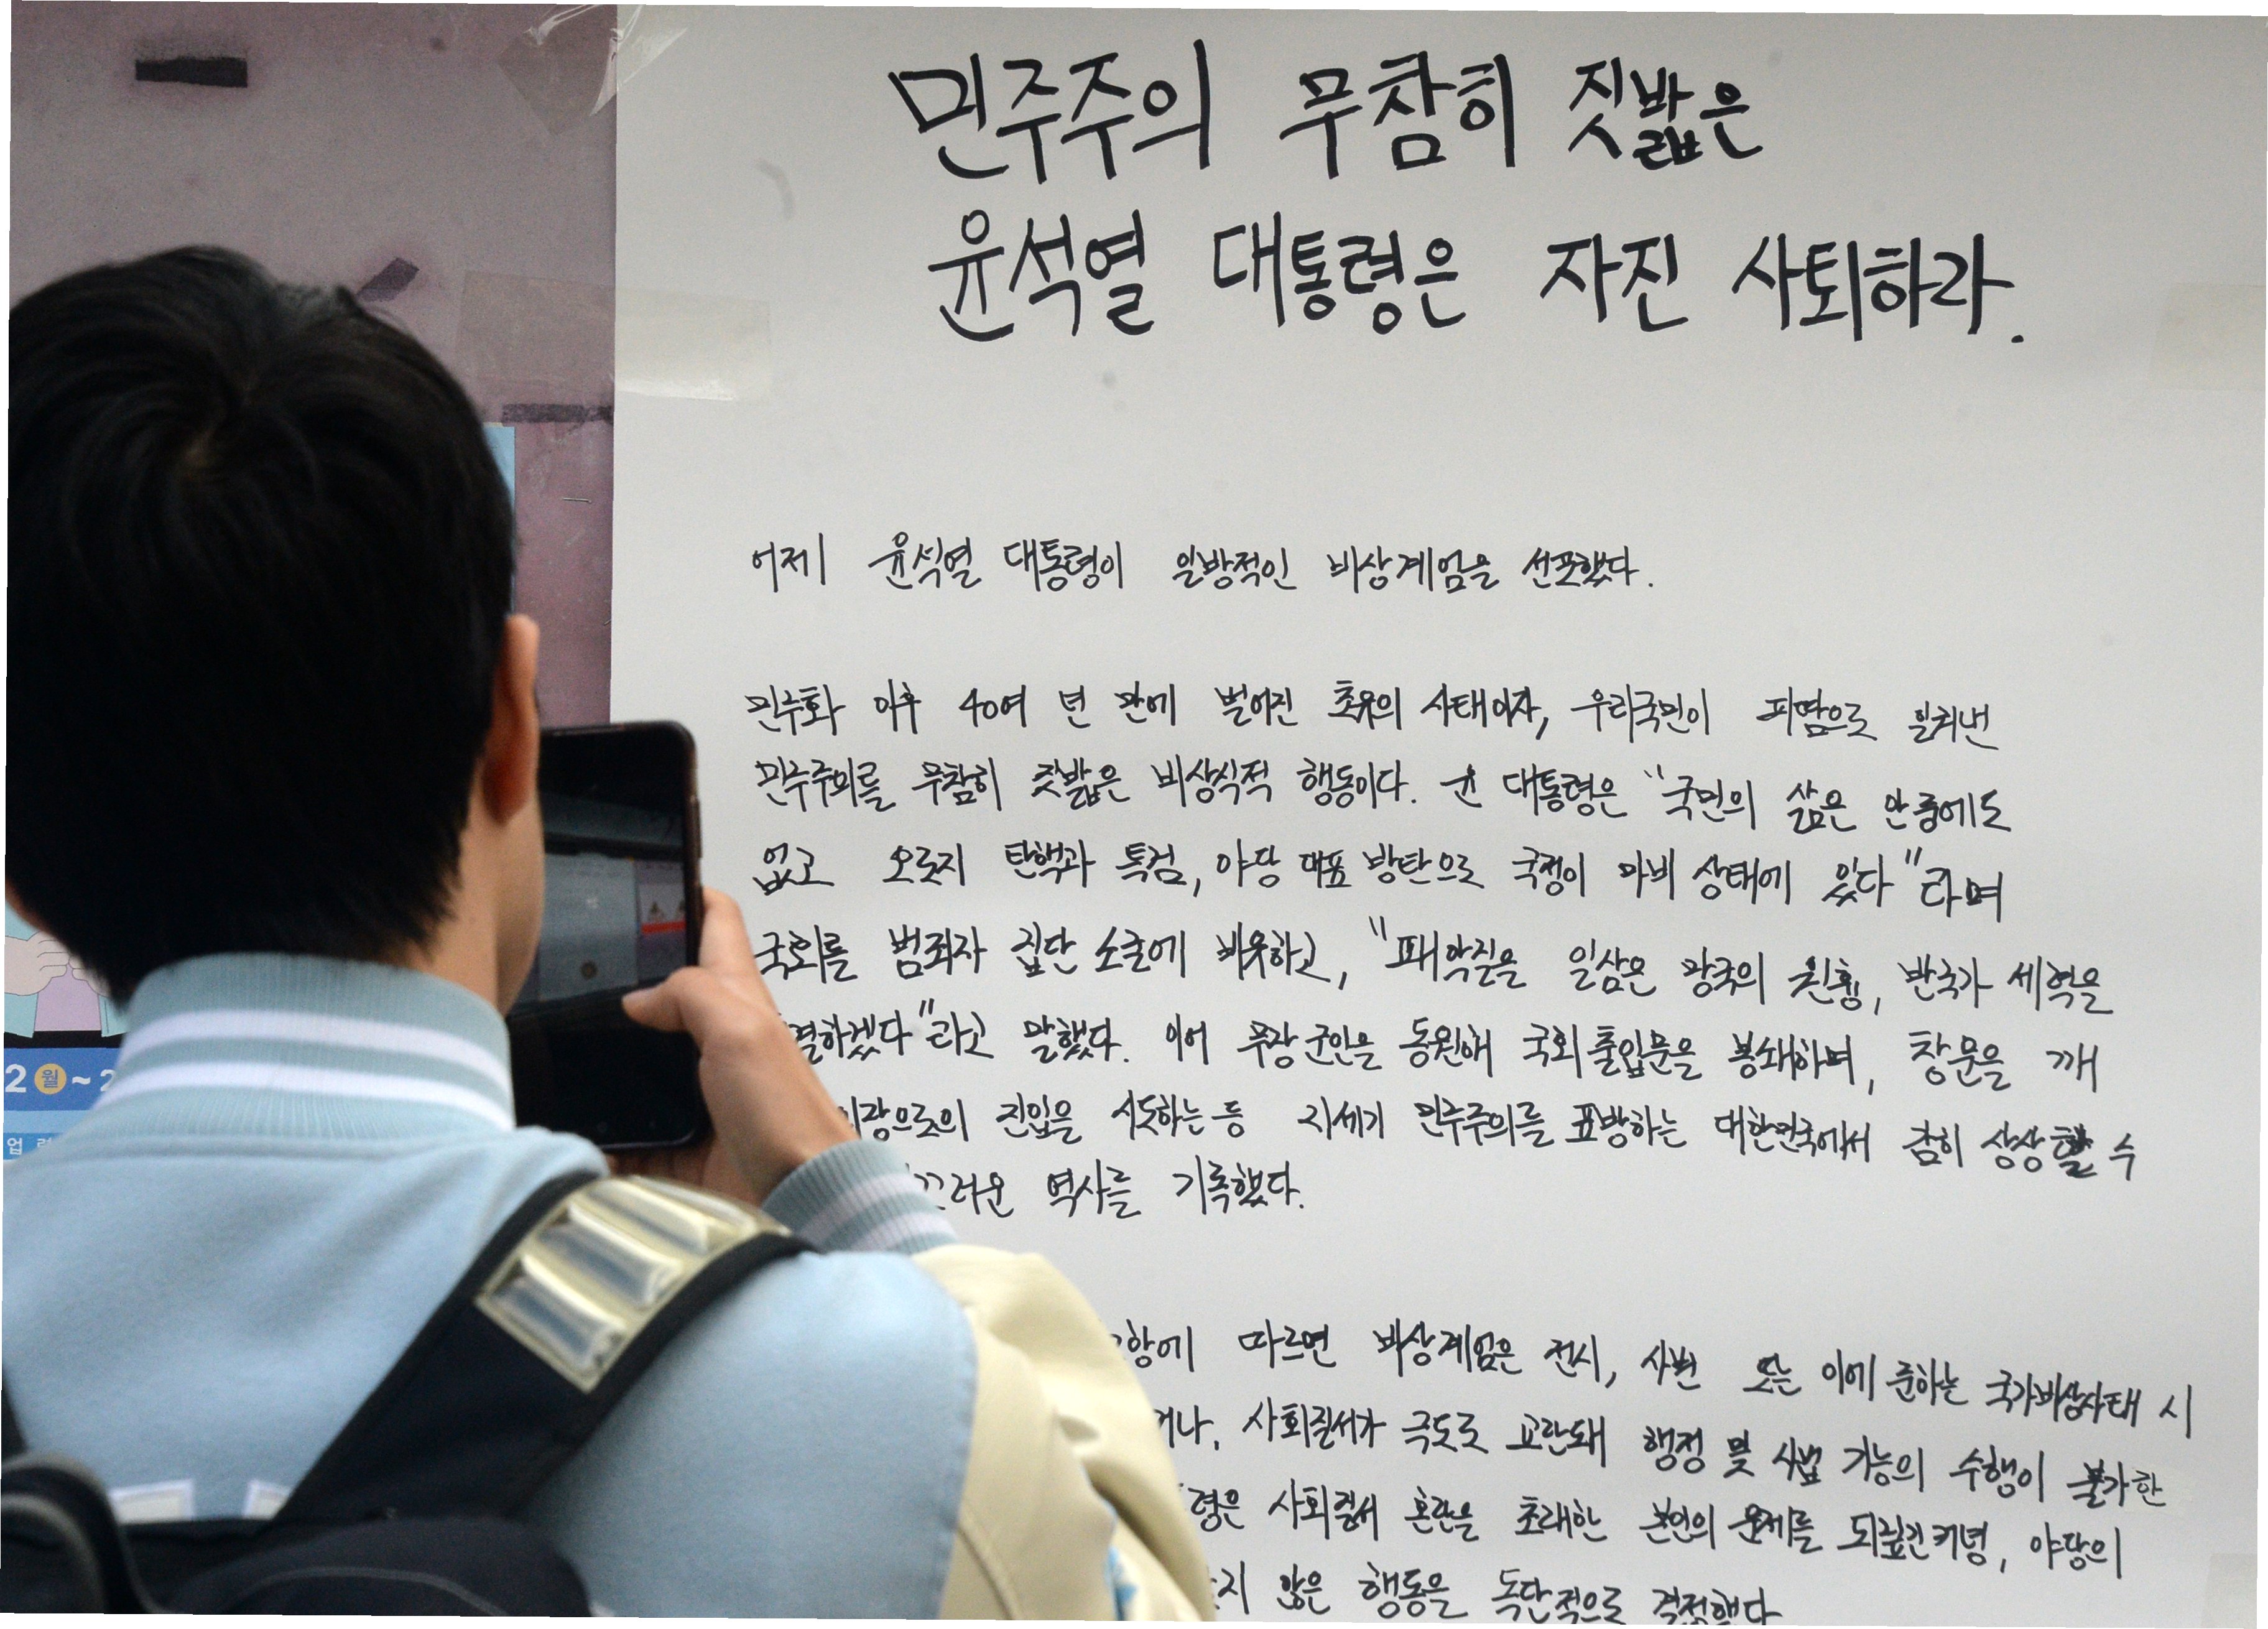 민주주의 무참히 짓밟은
윤석열 대통령은 자진 사퇴하라.
어제 윤석열 대통령이 일방적인 비상계엄을 선포했다.
민주화 이후 40여 년 만에 벌어진 초유의 사태이자, 우리국민이 피땀으로 일궈낸
민주주의를 무참히 짓밟은 비상식적 행동이다. 윤 대통령은 "국민의 삶은 안중에도
없고 오로지 탄핵과 특검, 야당 대표 방탄으로 국정이 마비 상태에 있다"라며
국회를 범죄자 집단 소굴에 비유하고, "패악질을 일삼은 망국의 원흉, 반국가 세력을
결하겠다"라고 말했다. 이어 무장군인을 동원해 국회 출입문을 봉쇄하며, 창문을 깨
의장으로의 진입을 시도하는 등 21세기 민주주의를 표방하는 대한민국에서 감히 상상할 수
끄러운 역사를 기록했다.
항에 따르면 비상계엄은 전시, 사변 또는 이에 준하는 국가비상사태 시
거나, 사회질서가 극도로 교란돼 행정 및 사법 기능의 수행이 불가한
령은 사회질서 혼란을 초래한 본인의 문제를 되짚긴커녕, 야당의
지 않은 행동을 독단적으로 결정했다
2 월 ~ 2
업